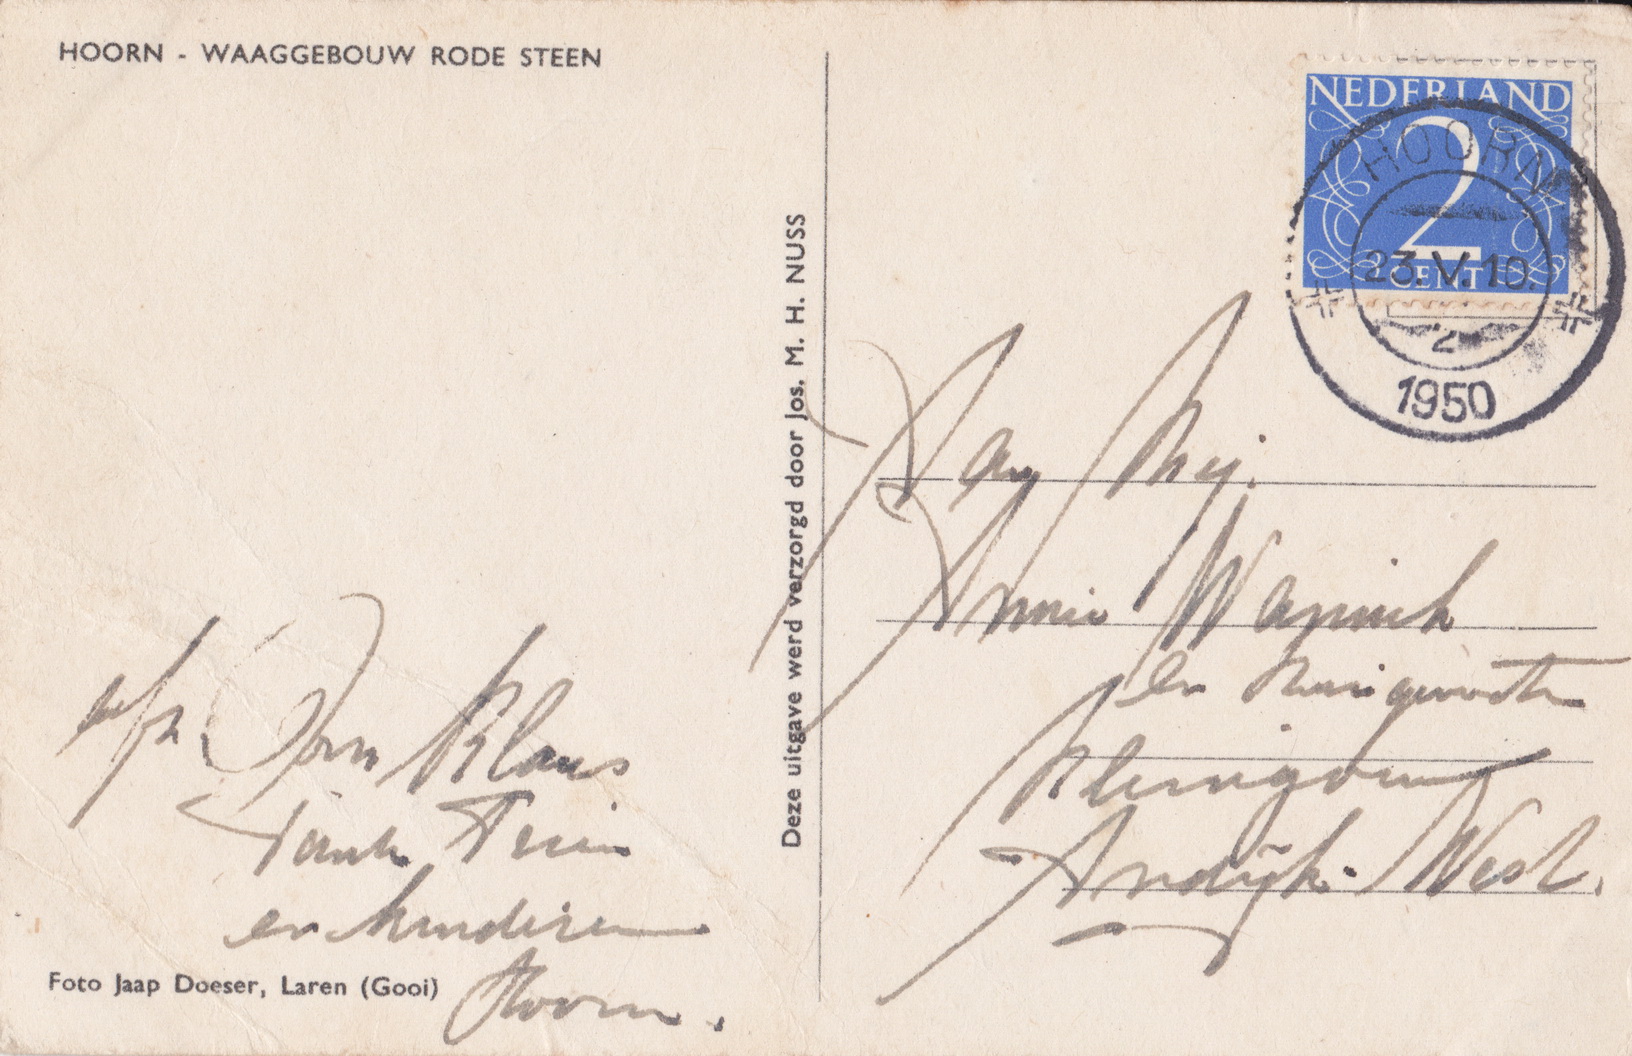 HOORN - WAAGGEBOUW RODE STEEN
NEDERLAND
2
CENT
HOORN
23.V.10.
2
1950
Deze uitgave werd verzorgd door Jos. M. H. NUSS
Annie
en
Andijk-West.
Oom Klaas
Tante Trien
en kinderen
Hoorn.
Foto Jaap Doeser, Laren (Gooi)